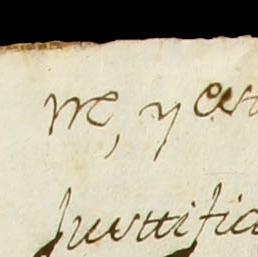 me, y est
justifica